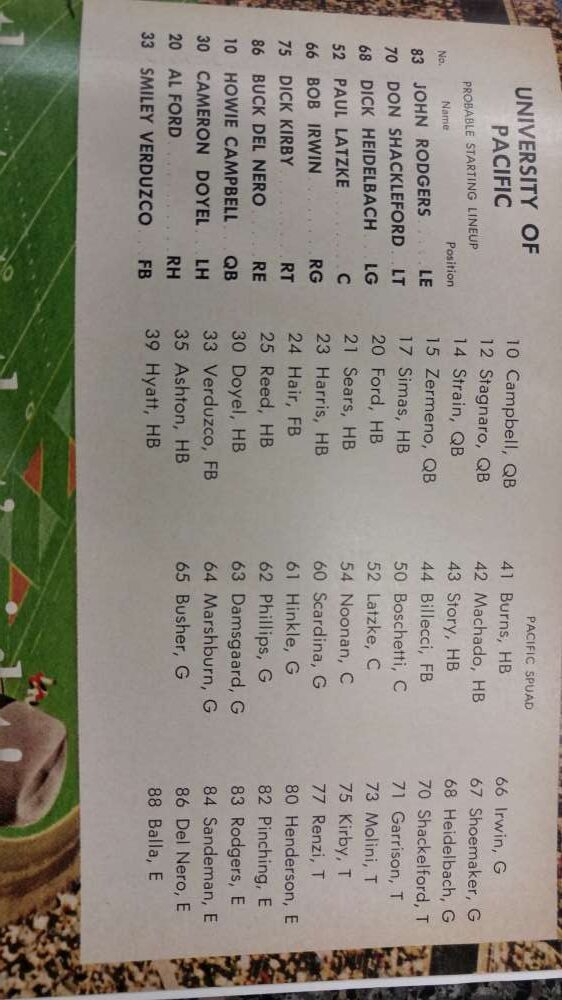 UNIVERSITY OF
PACIFIC
PROBABLE STARTING LINEUP
No. Name Position
83 JOHN RODGERS .... LE
70 DON SHACKLEFORD .. LT
68 DICK HEIDELBACH LG
52 PAUL LATZKE ...... C
66 BOB IRWIN ........ RG
75 DICK KIRBY ....... RT
86 BUCK DEL NERO .... RE
10 HOWIE CAMPBELL QB
30 CAMERON DOYEL LH
20 AL FORD ......... RH
33 SMILEY VERDUZCO .. FB
PACIFIC SPUAD
10 Campbell, QB
12 Stagnaro, QB
14 Strain, QB
15 Zermeno, QB
17 Simas, HB
20 Ford, HB
21 Sears, HB
23 Harris, HB
24 Hair, FB
25 Reed, HB
30 Doyel, HB
33 Verduzco, FB
35 Ashton, HB
39 Hyatt, HB
41 Burns, HB
42 Machado, HB
43 Story, HB
44 Billecci, FB
50 Boschetti, C
52 Latzke, C
54 Noonan, C
60 Scardina, G
61 Hinkle, G
62 Phillips, G
63 Damsgaard, G
64 Marshburn, G
65 Busher, G
66 Irwin, G
67 Shoemaker, G
68 Heidelbach, G
70 Shackelford, T
71 Garrison, T
73 Molini, T
75 Kirby, T
77 Renzi, T
80 Henderson, E
82 Pinching, E
83 Rodgers, E
84 Sandeman, E
86 Del Nero, E
88 Balla, E